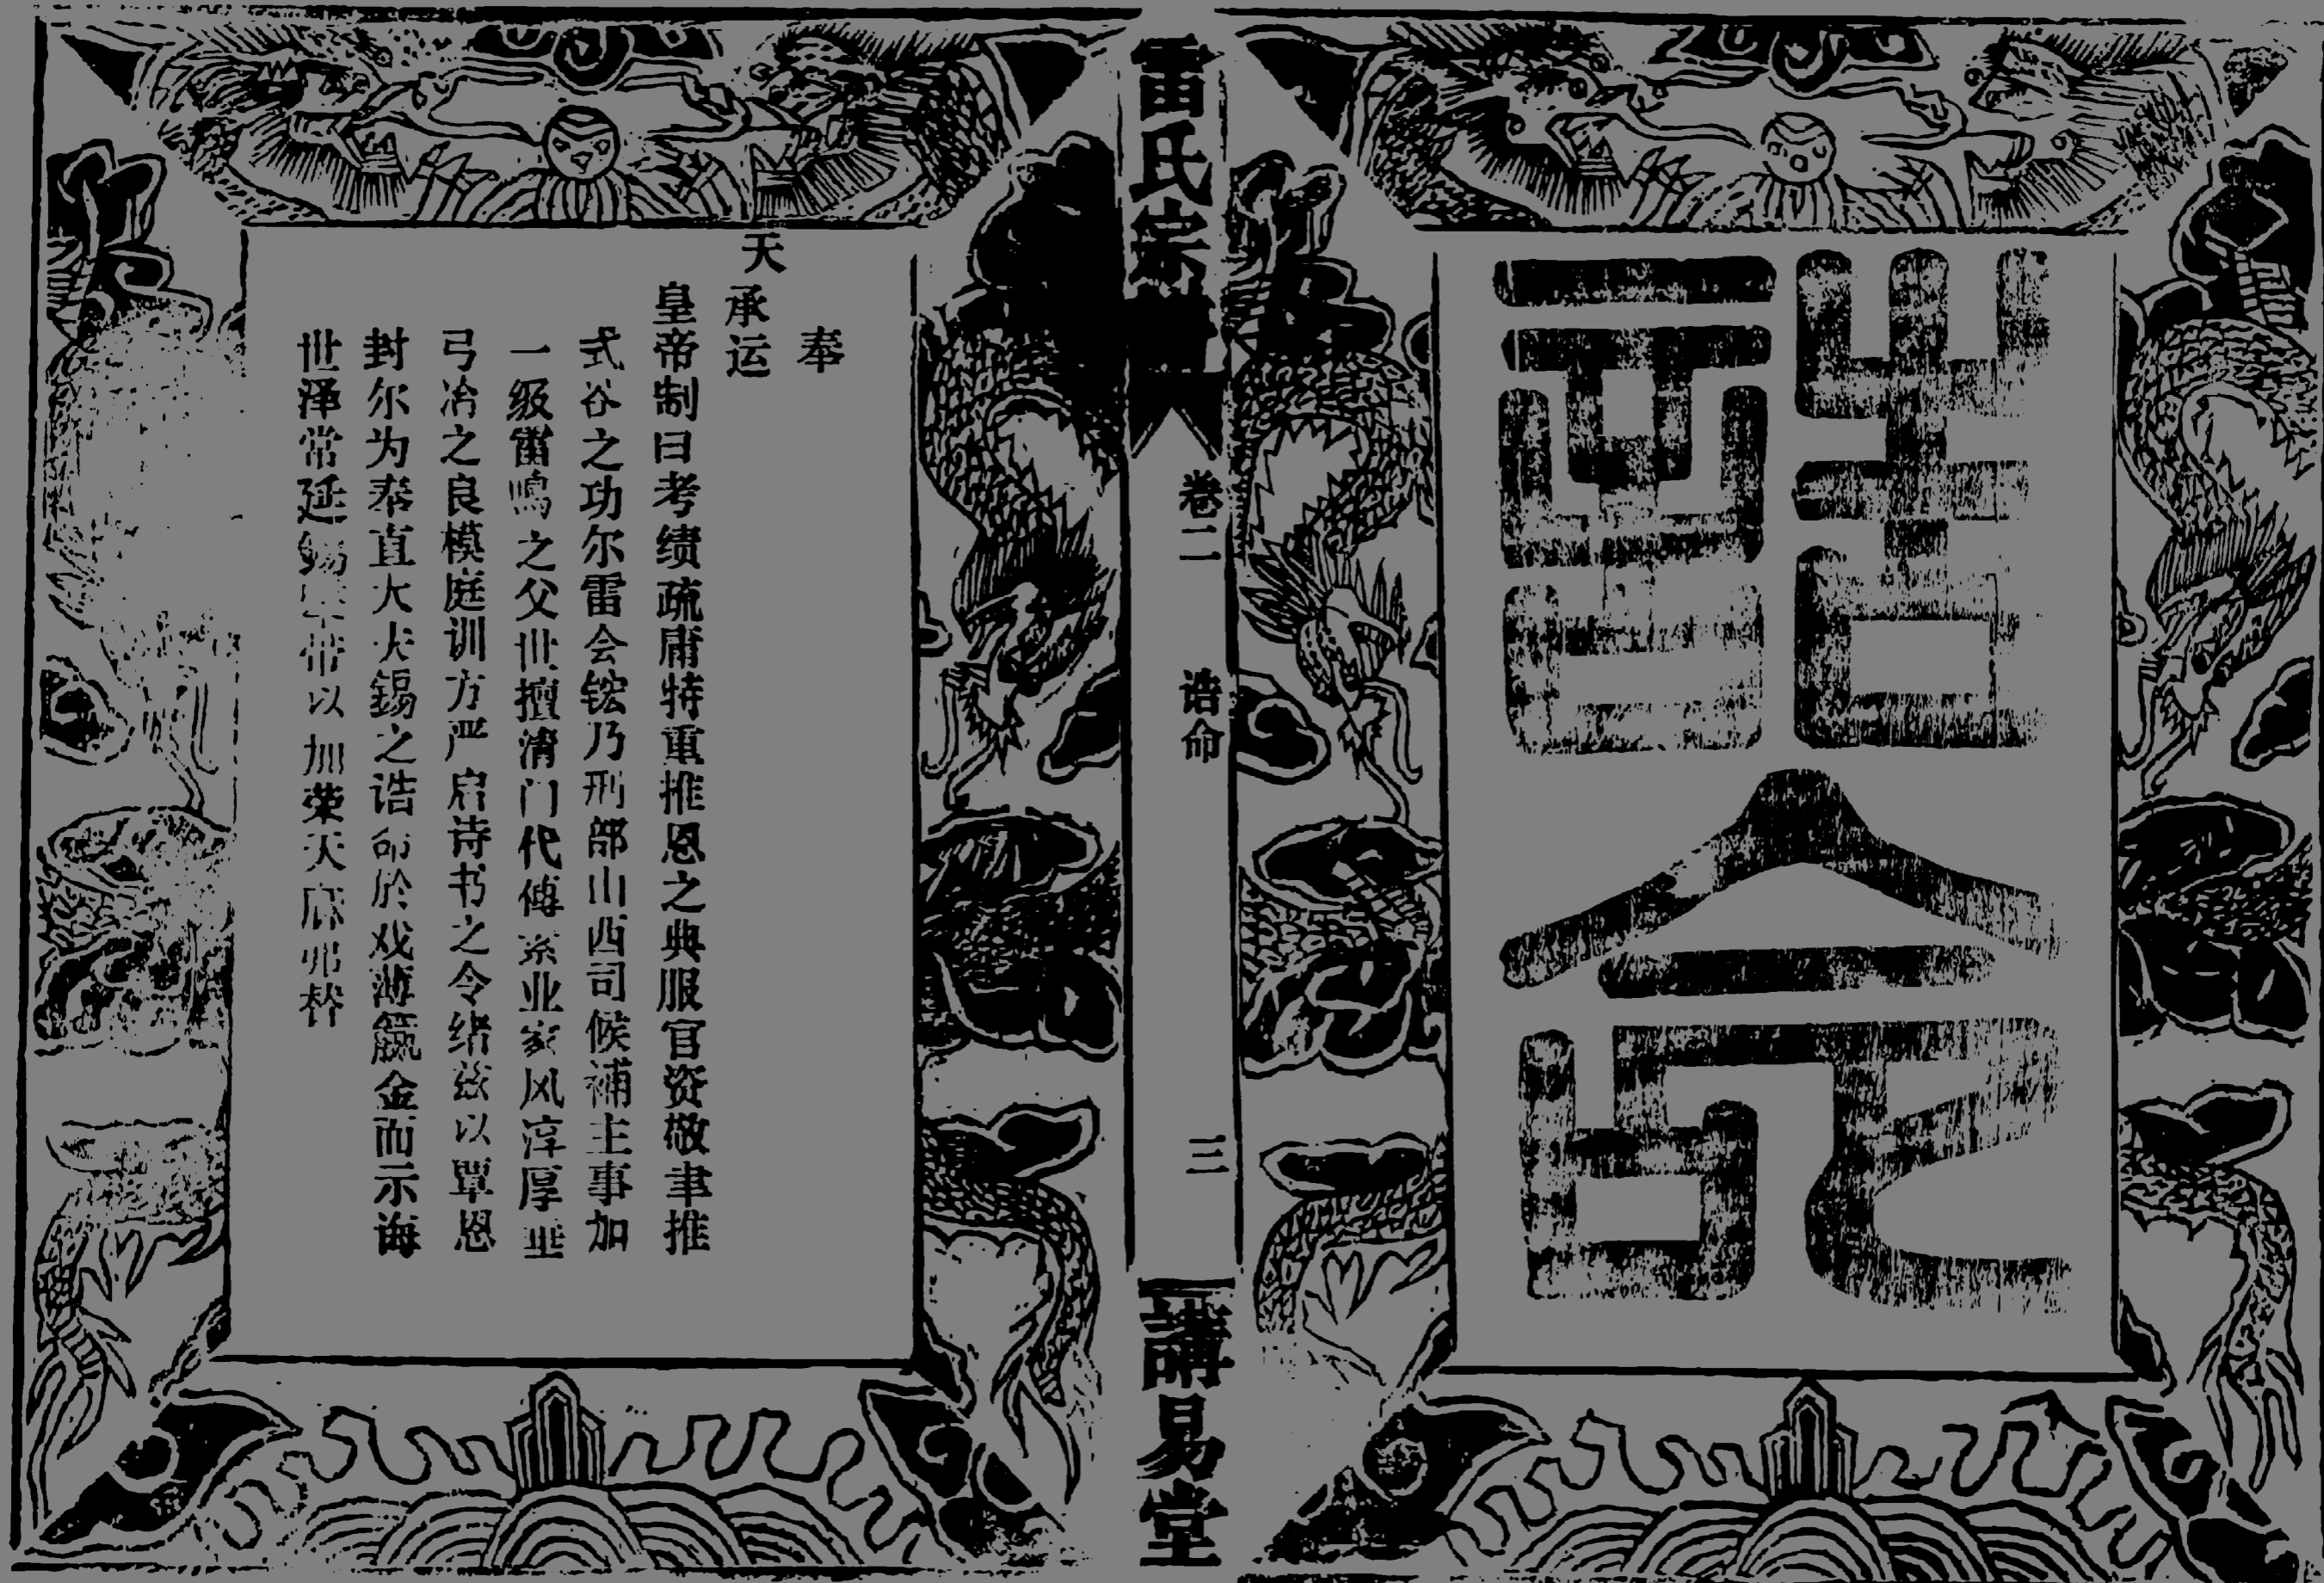 誥命
雷氏宗譜
卷二
诰命
三
講易堂
奉
天
承运
皇帝制曰考绩疏庸特重推恩之典服官资敬聿推
式谷之功尔雷会铨乃刑部山西司候補主事加
一级雷鸣之父世擅清门代傅素业家风淳厚垂
弓冶之良模庭训方严启诗书之令绪兹以覃恩
封尔为奉直大夫錫之诰命於戏薄籝金而示诲
世泽常延錫鞶带以加荣天庥弗替